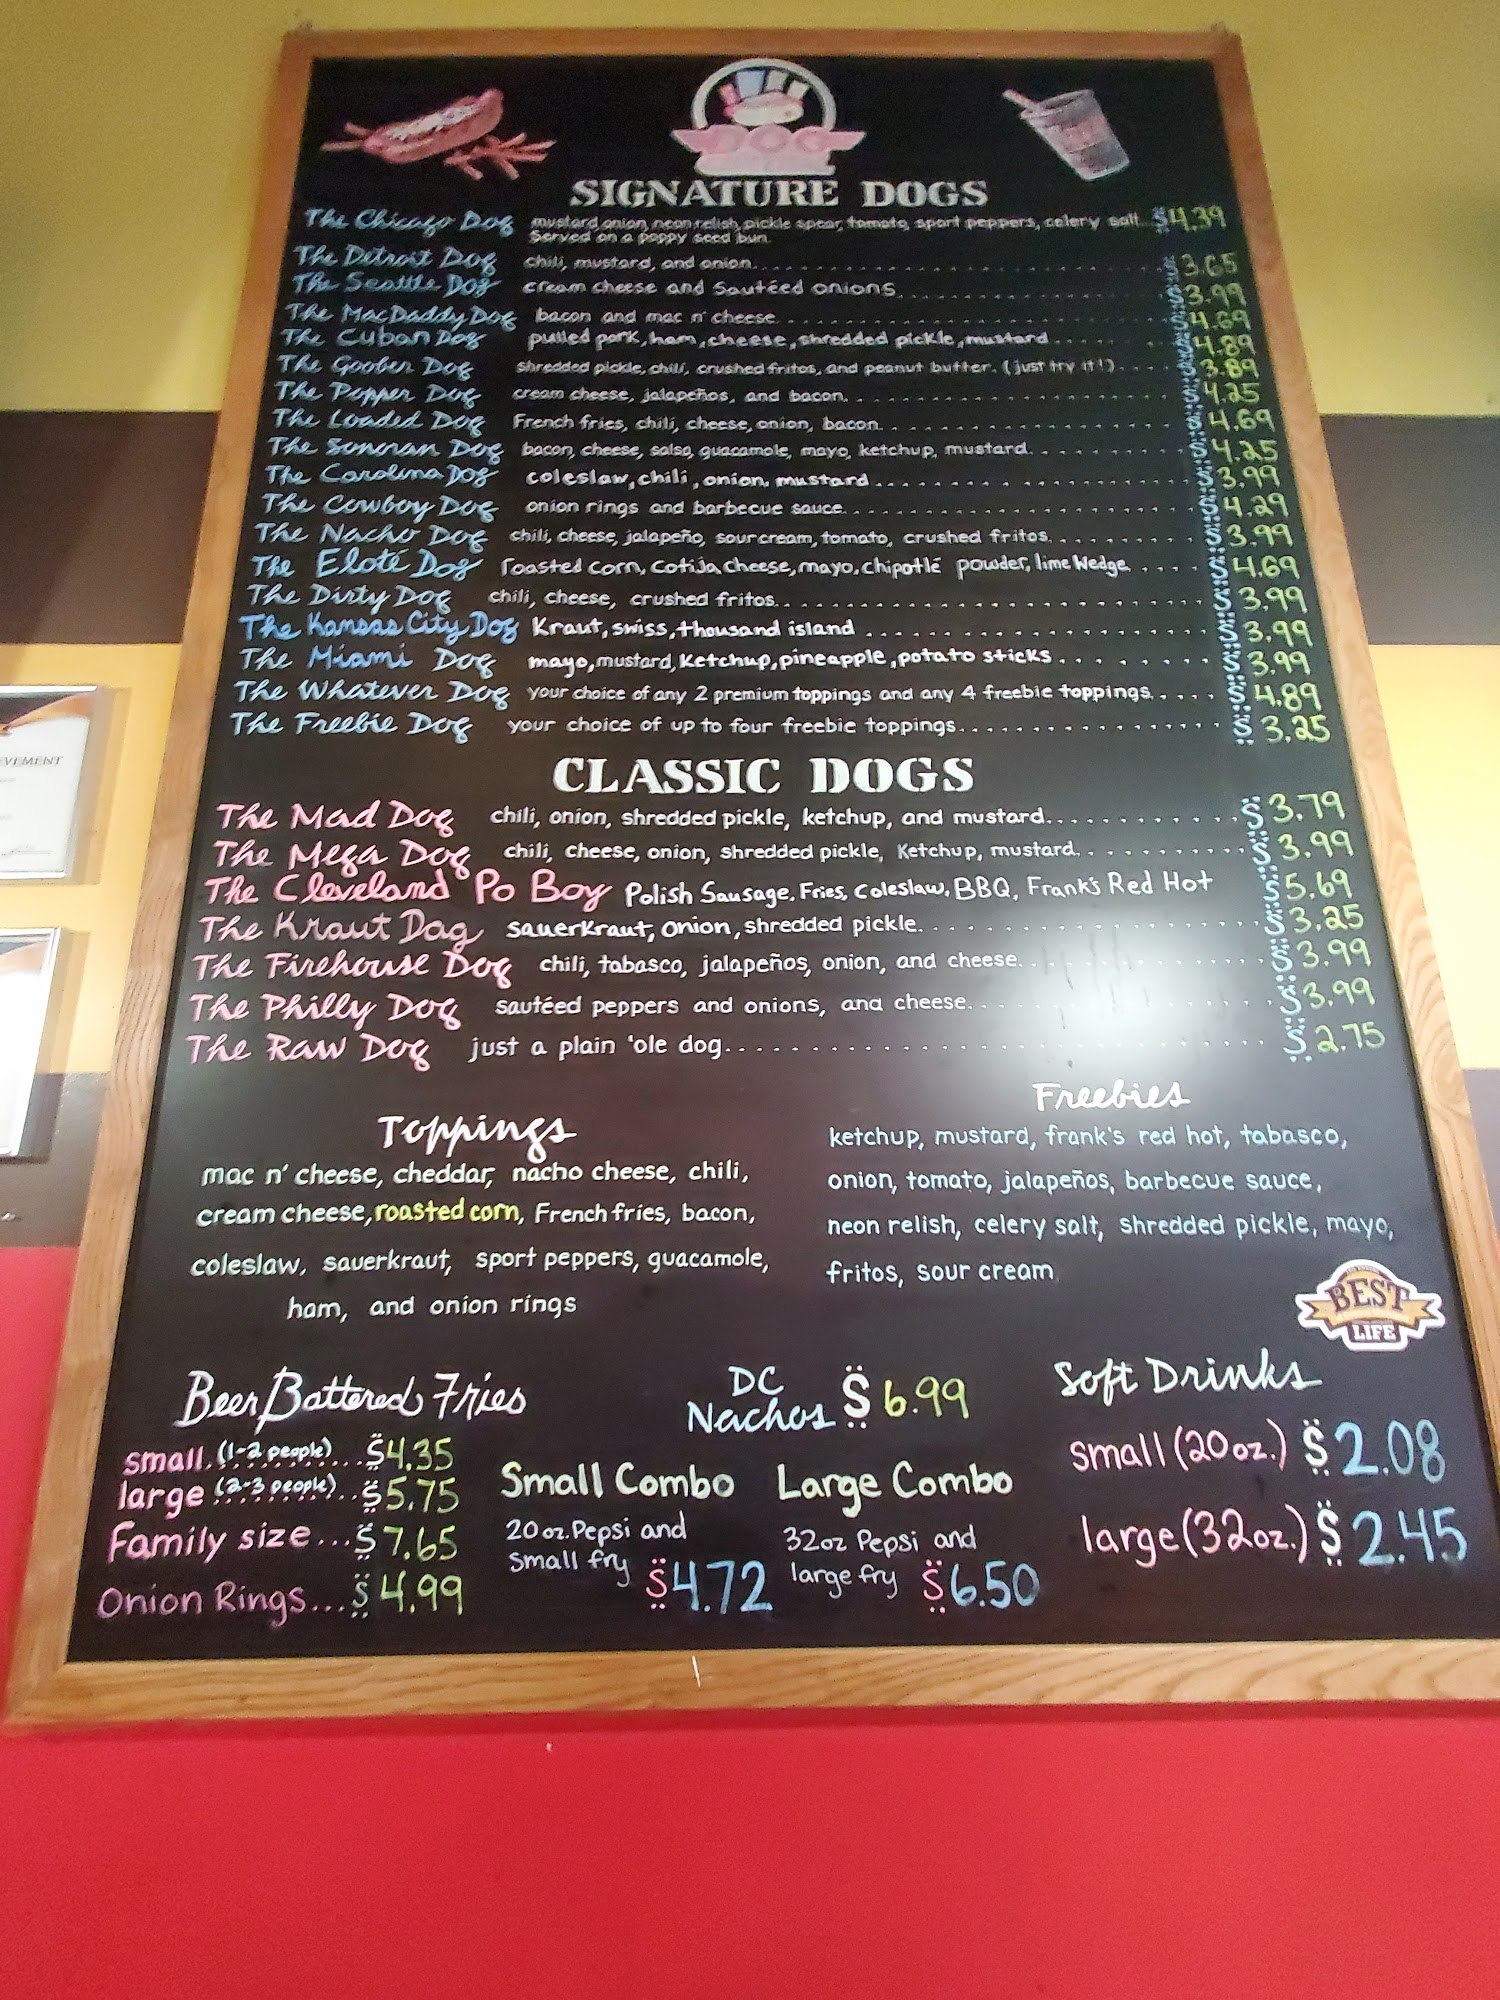 DOG
SIGNATURE DOGS
The Chicago Dog mustard, onion, neon relish, pickle spear, tomato, sport peppers, celery salt. $4.39
Served on a poppy seed bun.
The Detroit Dog chili, mustard, and onion. $3.65
The Seattle Dog cream cheese and Sautéed onions $3.99
The MacDaddy Dog bacon and mac n' cheese. $4.69
The Cuban Dog pulled pork, ham, cheese, shredded pickle, mustard $4.89
The Goober Dog shredded pickle, chili, crushed fritos, and peanut butter. (just try it!) $3.89
The Popper Dog cream cheese, jalapeños, and bacon. $4.25
The Loaded Dog French fries, chili, cheese, onion, bacon. $4.69
The Sonoran Dog bacon, cheese, salsa, guacamole, mayo, ketchup, mustard. $4.25
The Carolina Dog coleslaw, chili, onion, mustard $3.99
The Cowboy Dog onion rings and barbecue sauce. $4.29
The Nacho Dog chili, cheese, jalapeño, sour cream, tomato, crushed fritos. $3.99
The Eloté Dog roasted corn, cotija cheese, mayo, chipotlé powder, lime wedge. $4.69
The Dirty Dog chili, cheese, crushed fritos. $3.99
The Kansas City Dog Kraut, swiss, thousand island $3.99
The Miami Dog mayo, mustard, Ketchup, pineapple, potato sticks. $3.99
The Whatever Dog your choice of any 2 premium toppings and any 4 freebie toppings. $4.89
The Freebie Dog your choice of up to four freebie toppings. $3.25
CLASSIC DOGS
The Mad Dog chili, onion, shredded pickle, ketchup, and mustard. $3.79
The Mega Dog chili, cheese, onion, shredded pickle, Ketchup, mustard. $3.99
The Cleveland Po Boy Polish Sausage, Fries, Coleslaw, BBQ, Frank's Red Hot $5.69
The Kraut Dag sauerkraut, onion, shredded pickle. $3.25
The Firehouse Dog chili, tabasco, jalapeños, onion, and cheese. $3.99
The Philly Dog sautéed peppers and onions, and cheese. $3.99
The Raw Dog just a plain 'ole dog. $2.75
Toppings
mac n' cheese, cheddar, nacho cheese, chili,
cream cheese, roasted corn, French fries, bacon,
coleslaw, sauerkraut, sport peppers, guacamole,
ham, and onion rings
Freebies
ketchup, mustard, frank's red hot, tabasco,
onion, tomato, jalapeños, barbecue sauce,
neon relish, celery salt, shredded pickle, mayo,
fritos, sour cream
BEST
LIFE
Beer Battered Fries
small (1-2 people) ... $4.35
large (2-3 people) ... $5.75
Family size ... $7.65
Onion Rings ... $4.99
DC
Nachos $6.99
Small Combo
20 oz. Pepsi and
small fry $4.72
Large Combo
32oz Pepsi and
large fry $6.50
Soft Drinks
small (20 oz.) $2.08
large (32oz.) $2.45
VEMENT